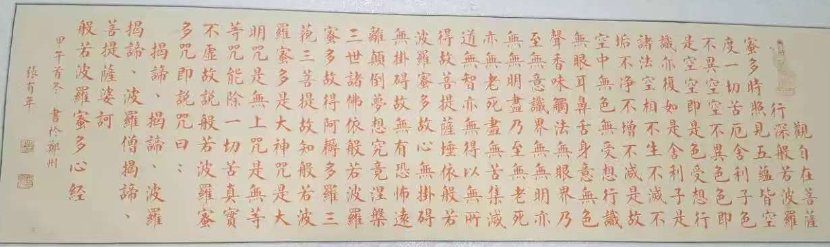 觀自在菩薩
行深般若波羅
蜜多時照見五蘊皆空
度一切苦厄舍利子色
不異空空不異色色即
是空空即是色受想行
識亦復如是舍利子是
諸法空相不生不滅不
垢不淨不增不減是故
空中無色無受想行識
無眼耳鼻舌身意無色
聲香味觸法無眼界乃
至無意識界無無明亦
無無明盡乃至無老死
亦無老死盡無苦集滅
道無智亦無得以無所
得故菩提薩埵依般若
波羅蜜多故心無掛碍
無掛碍故無有恐怖遠
離顛倒夢想究竟涅槃
三世諸佛依般若波羅
蜜多故得阿耨多羅三
藐三菩提故知般若波
羅蜜多是大神咒是大
明咒是無上咒是無等
等咒能除一切苦真實
不虛故說般若波羅蜜
多咒即說咒曰：
揭諦、揭諦、波羅
揭諦、波羅僧揭諦、
菩提薩婆訶
般若波羅蜜多心經
甲午首冬 書於鄭州
張有年